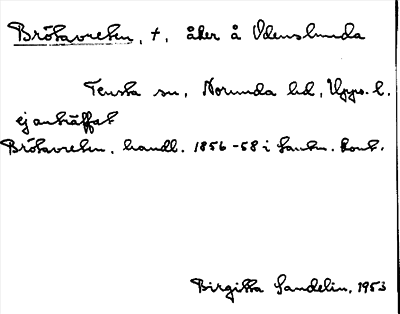 Brötavreten, †, åker å Udenslunda
Tensta sn, Norunda hd, Upps. l.
ej anträffat
Brötavreten. handl. 1856-58 i Lantm. kont.
Birgitta Sandelin, 1953